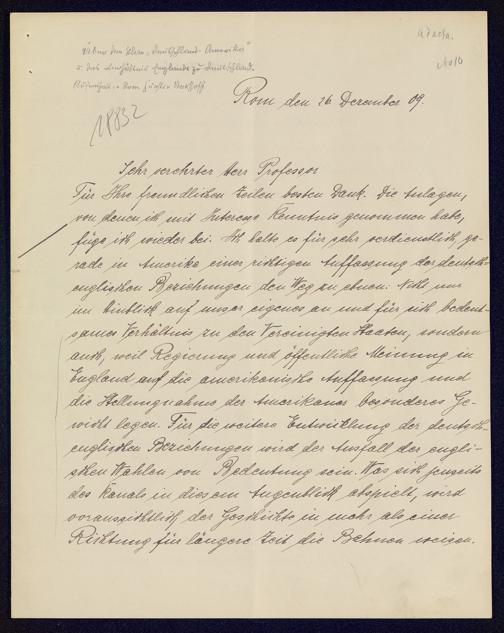 ad acta.
"Über den Plan "Deutschland-Amerika"
u. das Verhältnis Englands zu Deutschland.
18832
Rom den 26. Dezember 09.
Sehr verehrter Herr Professor
Für Ihre freundlichen Zeilen besten Dank. Die Anlagen,
von denen ich mit Interesse Kenntnis genommen habe,
füge ich wieder bei. Ich halte es für sehr verdienstlich, ge-
rade in Amerika einer richtigen Auffassung der deutsch-
englischen Beziehungen den Weg zu ebnen. Nicht nur
im Hinblick auf unser eigenes an und für sich bedeut-
sames Verhältnis zu den Vereinigten Staaten, sondern
auch, weil Regierung und öffentliche Meinung in
England auf die amerikanische Auffassung und
die Stellungnahme der Amerikaner besonderes Ge-
wicht legen. Für die weitere Entwicklung der deutsch-
englischen Beziehungen wird der Ausfall der engli-
schen Wahlen von Bedeutung sein. Was sich jenseits
des Kanals in diesem Augenblick abspielt, wird
voraussichtlich der Geschichte in mehr als einer
Richtung für längere Zeit die Bahnen weisen.